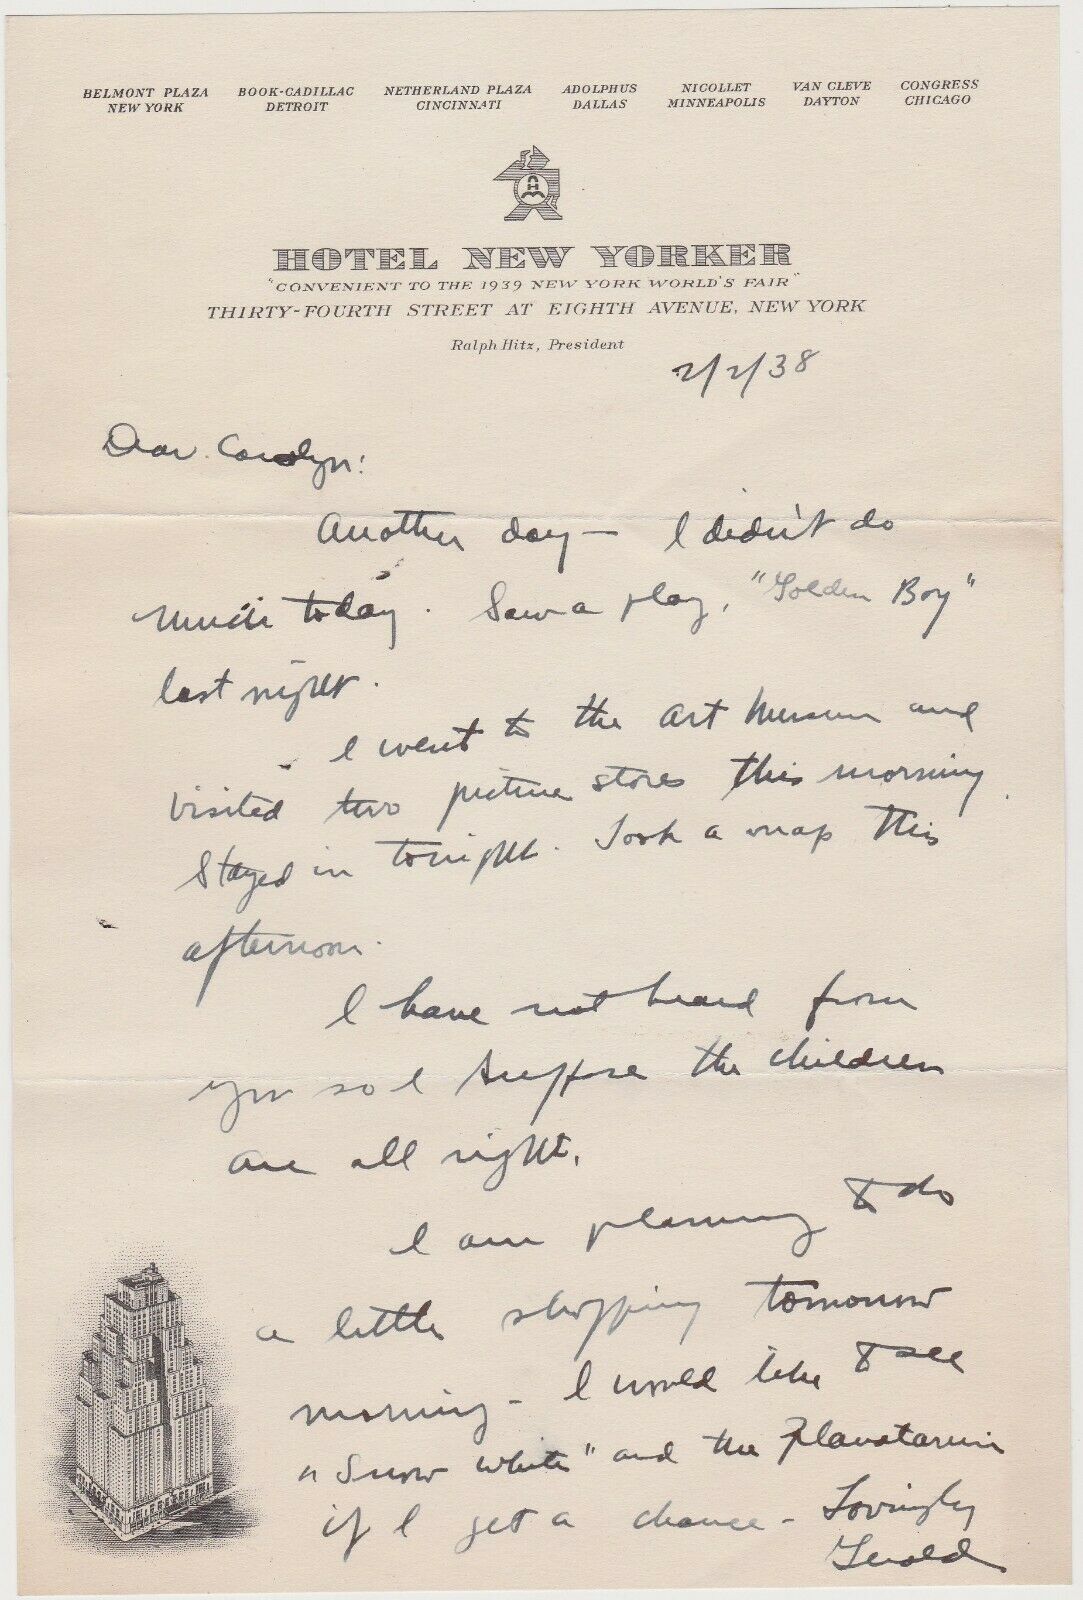 BELMONT PLAZA NEW YORK
BOOK-CADILLAC DETROIT
NETHERLAND PLAZA CINCINNATI
ADOLPHUS DALLAS
NICOLLET MINNEAPOLIS
VAN CLEVE DAYTON
CONGRESS CHICAGO
HOTEL NEW YORKER
"CONVENIENT TO THE 1939 NEW YORK WORLD'S FAIR"
THIRTY-FOURTH STREET AT EIGHTH AVENUE, NEW YORK
Ralph Hitz, President
2/2/38
Dear Carolyn:
Another day — I didn't do
much today. Saw a play, "Golden Boy"
last night.
I went to the Art Museum and
visited two picture stores this morning.
Stayed in tonight. Took a nap this
afternoon.
I have not heard from
you so I suppose the children
are all right.
I am planning to do
a little shopping tomorrow
morning - I would like to see
"Snow White" and the Planatarium
if I get a chance - Lovingly